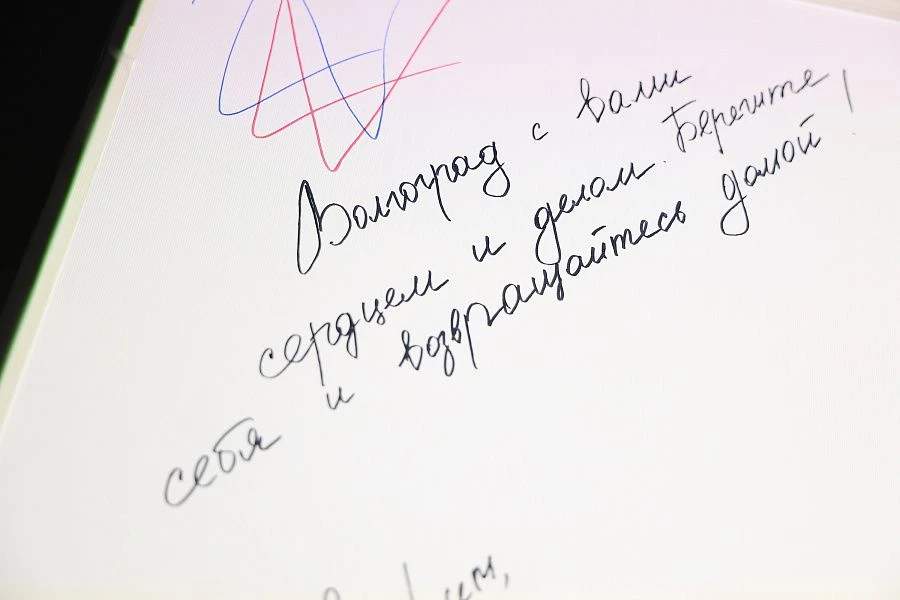 Волгоград с вами
сердцем и делом. Берегите
себя и возвращайтесь домой!